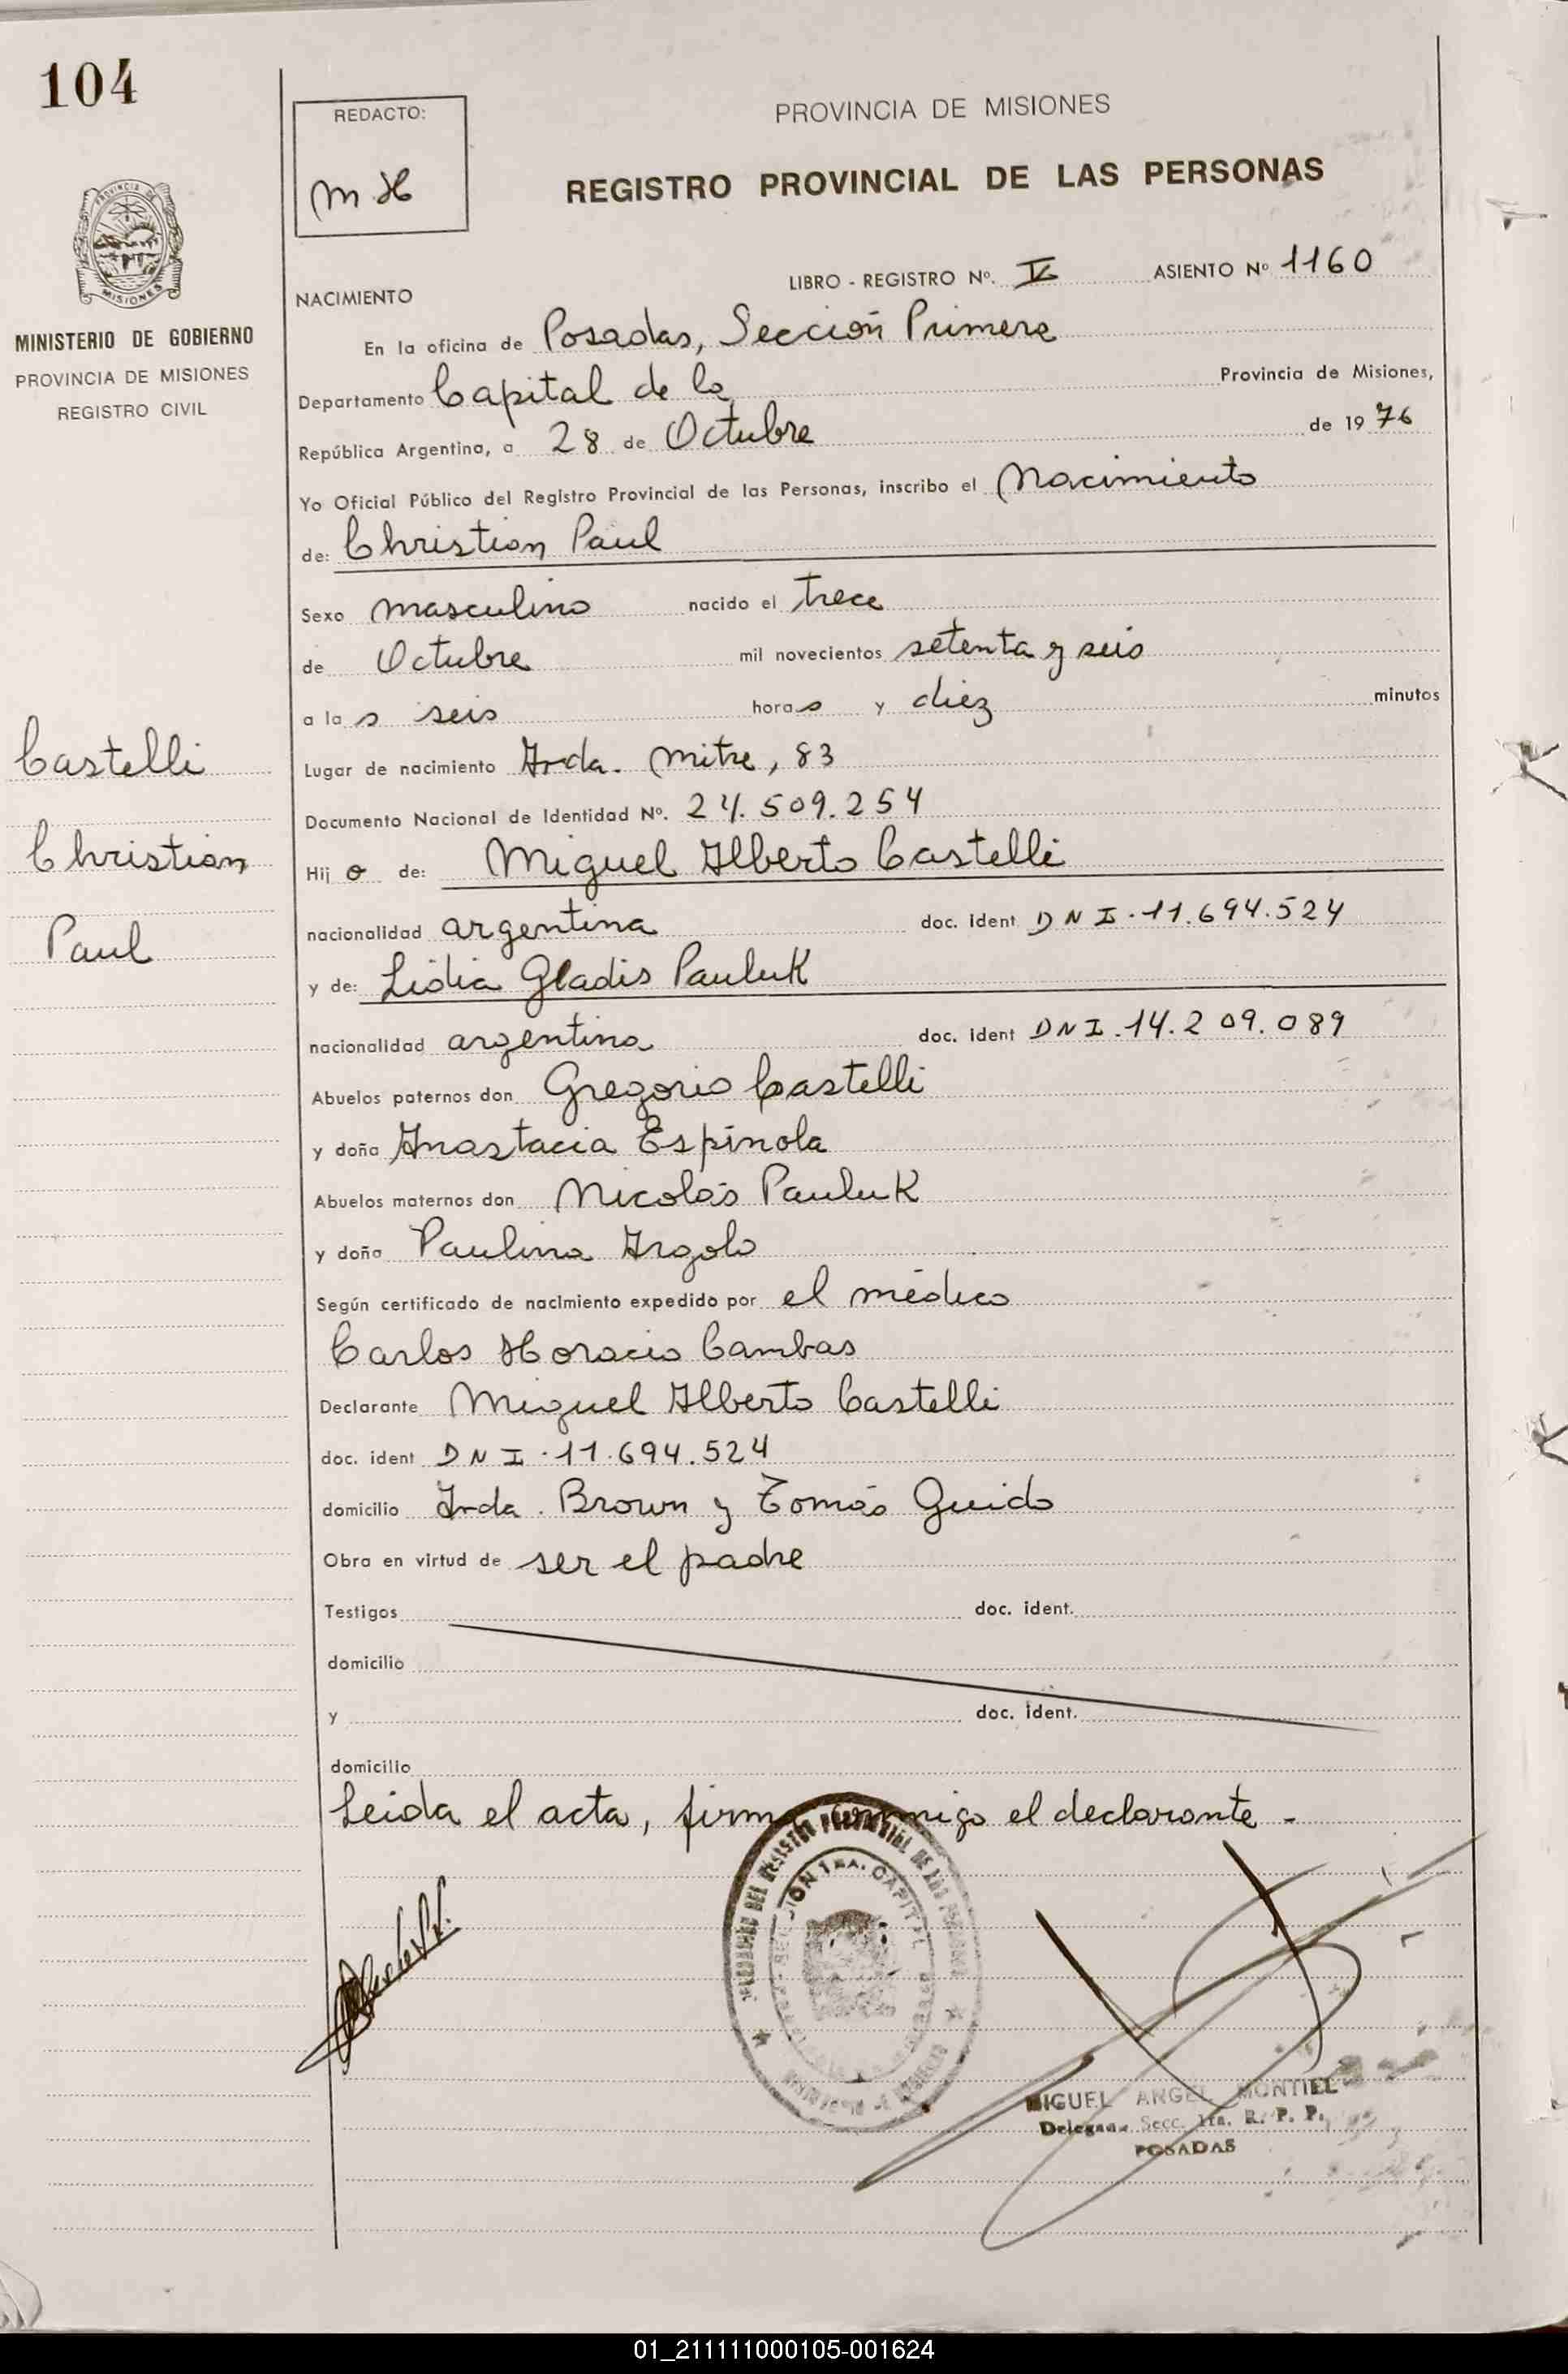 104
REDACTO:
M.H
PROVINCIA DE MISIONES
REGISTRO PROVINCIAL DE LAS PERSONAS
MISIONES
MINISTERIO DE GOBIERNO
PROVINCIA DE MISIONES
REGISTRO CIVIL
LIBRO - REGISTRO Nº. ASIENTO Nº 1160
NACIMIENTO
En la oficina de Posadas, Sección Primera
Departamento Capital de la Provincia de Misiones,
República Argentina, a 28 de Octubre de 1976
Yo Oficial Público del Registro Provincial de las Personas, inscribo el Nacimiento
de: Christian Paul
Sexo masculino nacido el trece
de Octubre mil novecientos setenta y seis
a las seis horas y diez minutos
Castelli
Christian
Paul
Lugar de nacimiento Avda. Mitre, 83
Documento Nacional de Identidad Nº. 24.509.254
Hijo de: Miguel Alberto Castelli
nacionalidad argentina doc. ident DNI.11.694.524
y de: Lidia Gladis Pauluk
nacionalidad argentina doc. ident DNI.14.209.089
Abuelos paternos don Gregorio Castelli
y doña Anastacia Espínola
Abuelos maternos don Nicolás Pauluk
y doña Paulina Argolo
Según certificado de nacimiento expedido por el médico
Carlos Horacio Cambas
Declarante Miguel Alberto Castelli
doc. ident DNI.11.694.524
domicilio Avda. Brown y Tomás Guido
Obra en virtud de ser el padre
Testigos doc. ident.
domicilio
y doc. ident.
domicilio
Leida el acta, firma conmigo el declarante -
MIGUEL ANGEL MONTIEL
Delegado Secc. 1ra. R. P. P.
POSADAS
01_211111000105-001624